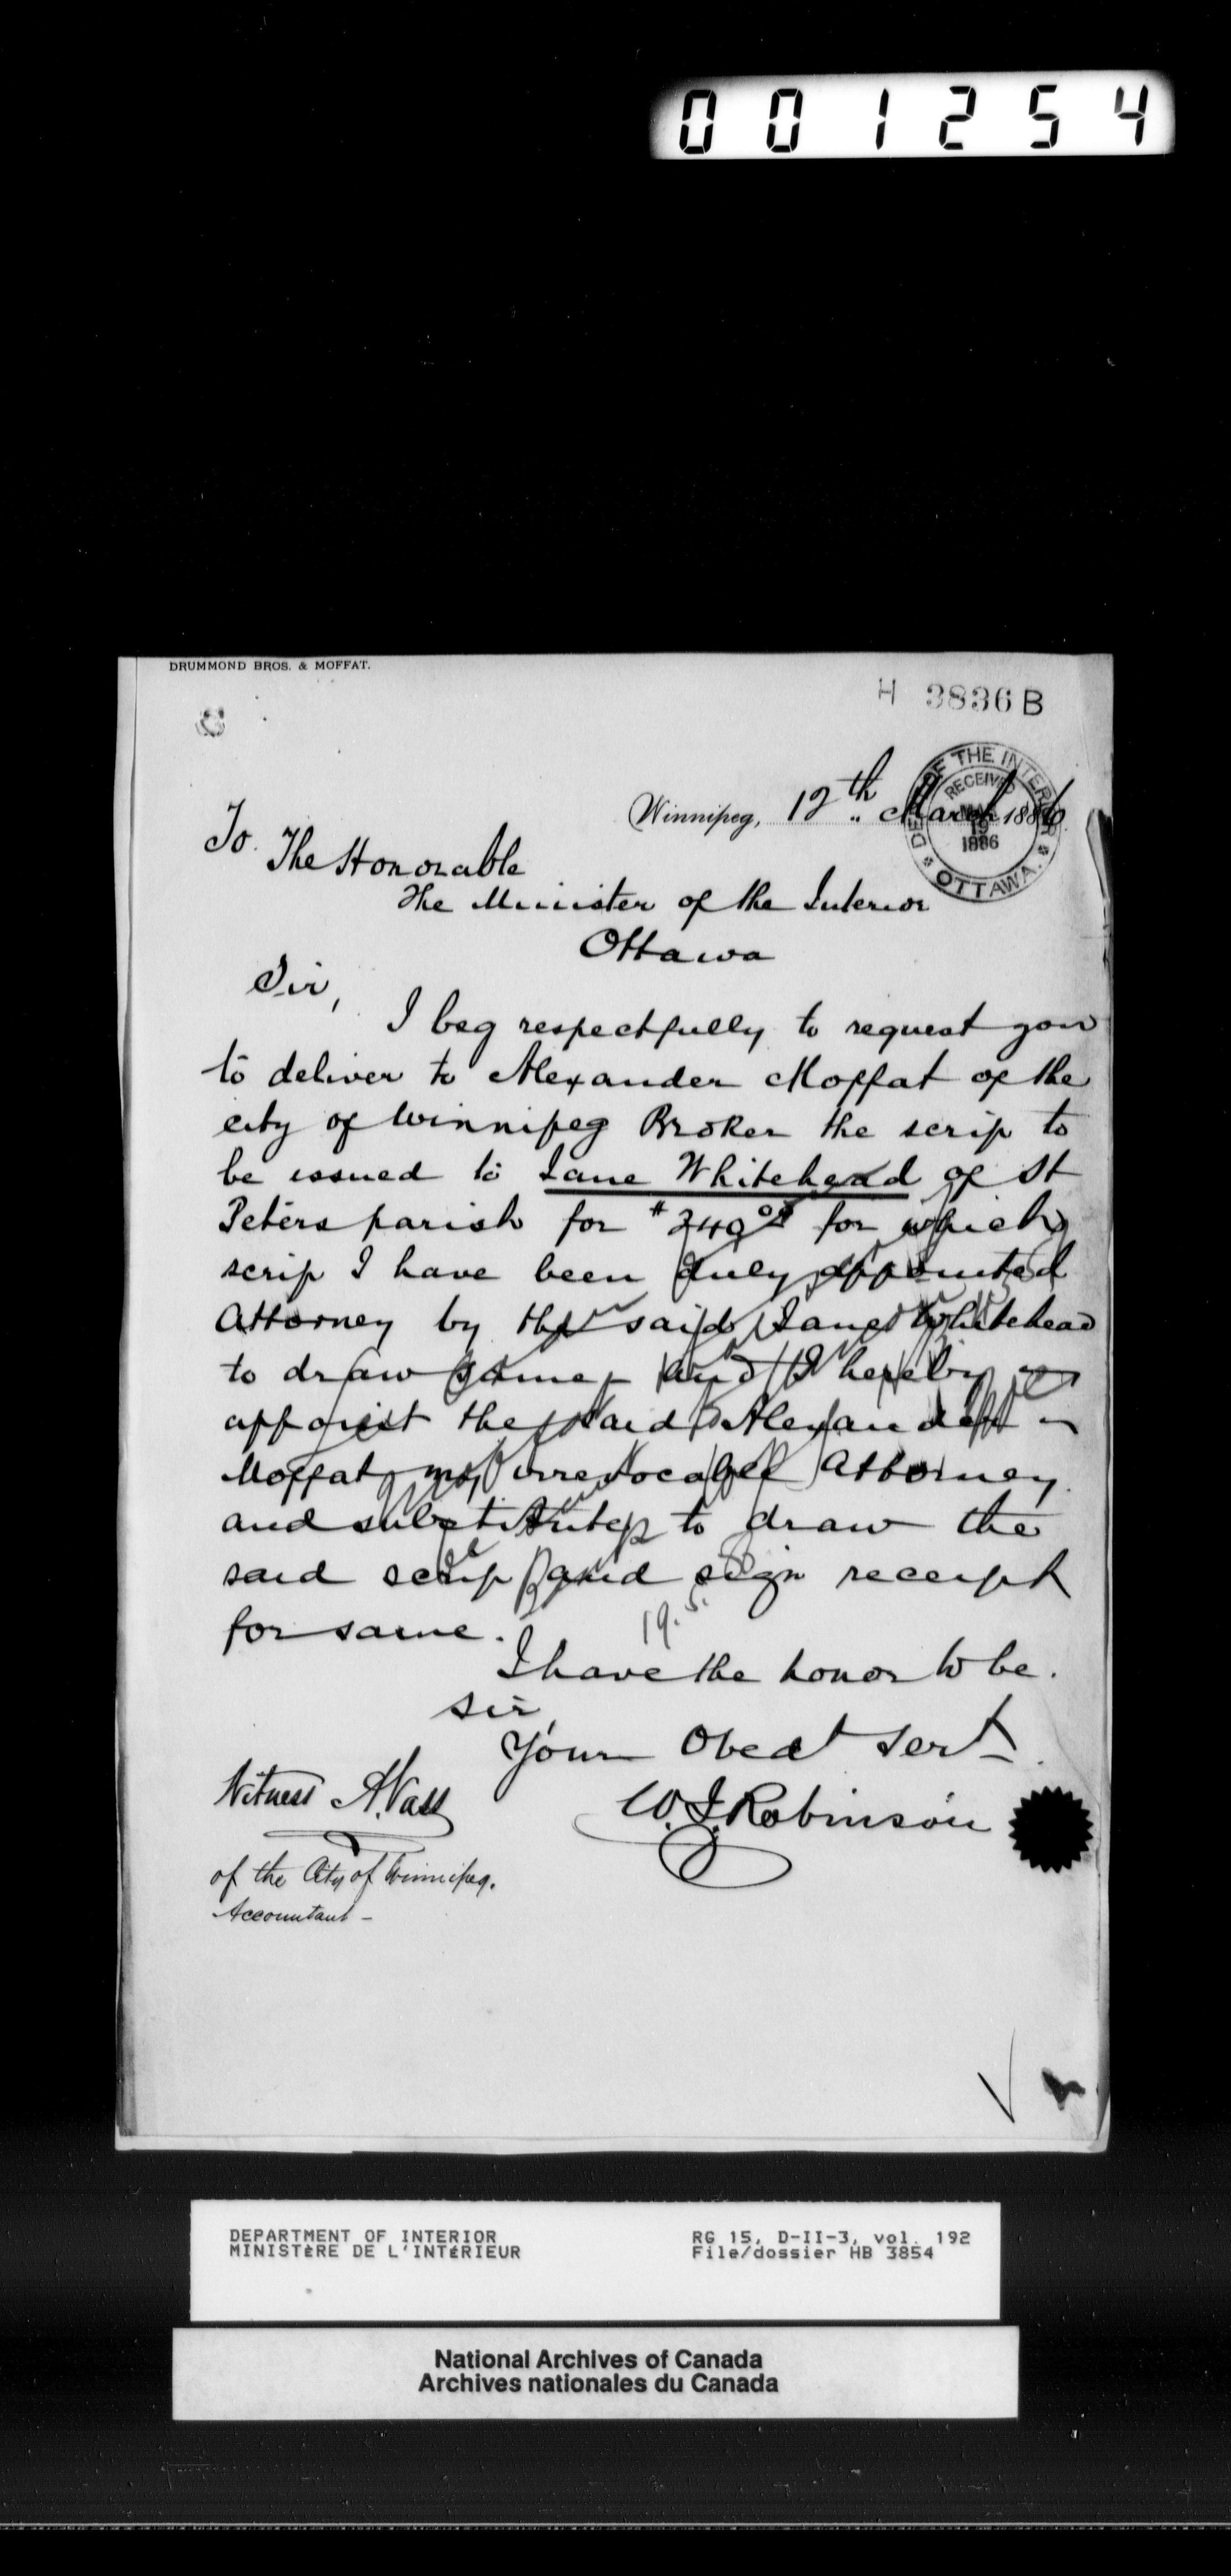 001254
DRUMMOND BROS. & MOFFAT.
H 3836 B
DEPT. OF THE INTERIOR
RECEIVED
MAR
19
1886
OTTAWA.
Winnipeg, 12th March 1886
To.
The Honorable
The Minister of the Interior
Ottawa
Sir,
I beg respectfully to request you
to deliver to Alexander Moffat of the
city of Winnipeg Broker the scrip to
be issued to Jane Whitehead of St
Peters parish for $240 00 for which
scrip I have been duly appointed
Attorney by the said Jane Whitehead
to draw same, and I hereby
appoint the said Alexander
Moffat my irrevocable Attorney
and substitute to draw the
said scrip and sign receipt
for same.
19.5.
I have the honor to be.
Sir,
Your Obedt Servt
Witness A. Vass
W. J. Robinson
of the City of Winnipeg.
Accountant -
DEPARTMENT OF INTERIOR
MINISTÈRE DE L'INTÉRIEUR
RG 15, D-II-3, vol. 192
File/dossier HB 3854
National Archives of Canada
Archives nationales du Canada